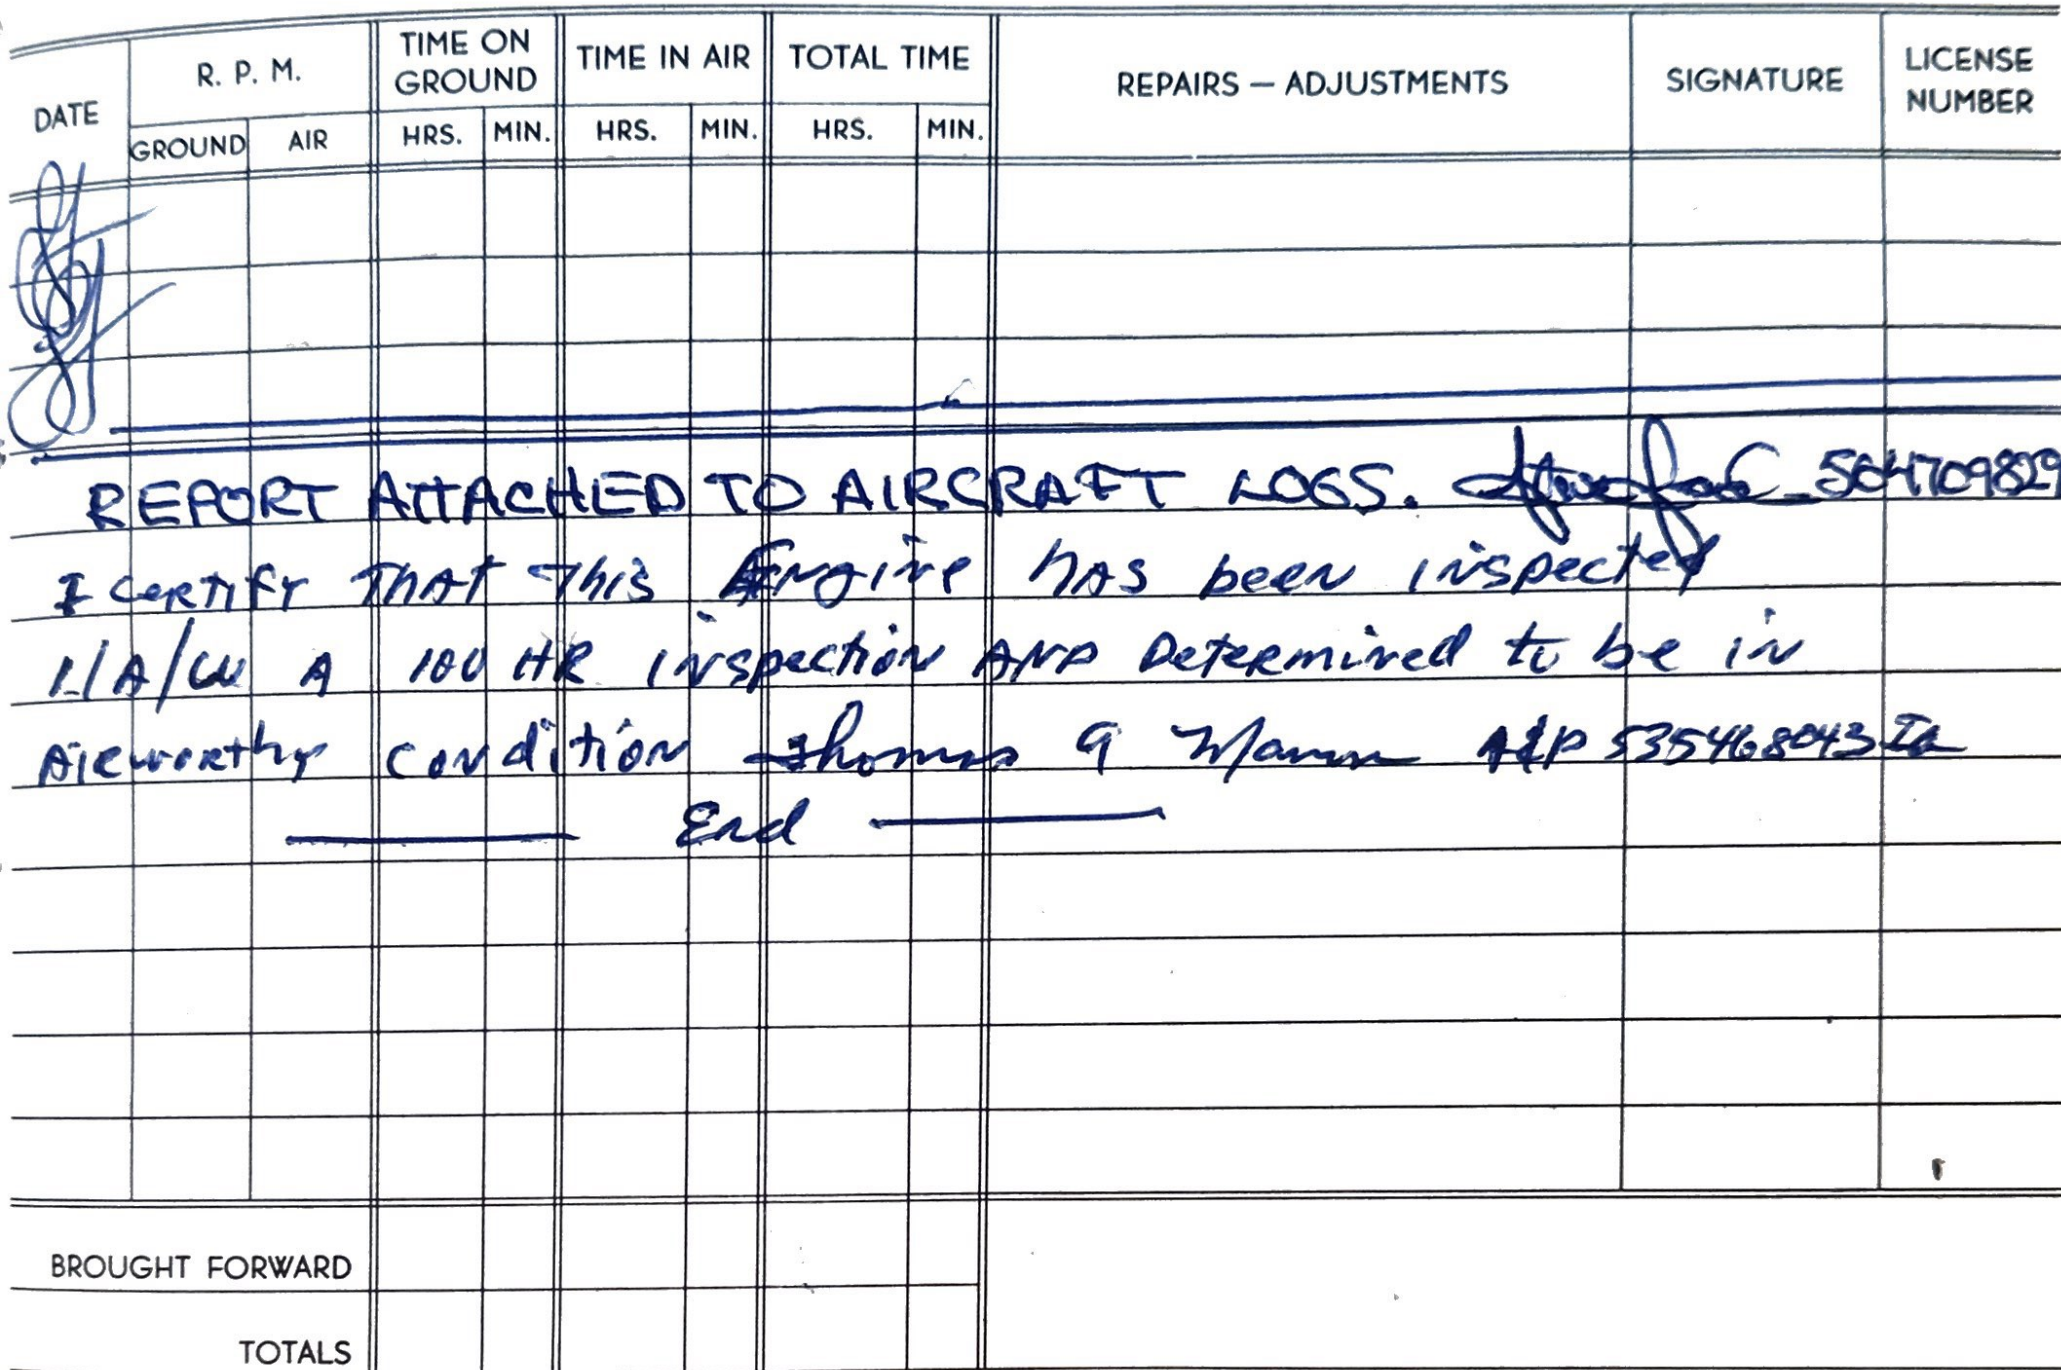 DATE R. P. M. TIME ON GROUND TIME IN AIR TOTAL TIME REPAIRS — ADJUSTMENTS SIGNATURE LICENSE NUMBER
GROUND AIR HRS. MIN. HRS. MIN. HRS. MIN.
REPORT ATTACHED TO AIRCRAFT LOGS. 504709829
I certify That This Engine has been inspected
I/A/W A 100 HR inspection AND Determined to be in
Airworthy condition Thomas G Mann A&P 535468043 Ia
End
BROUGHT FORWARD
TOTALS